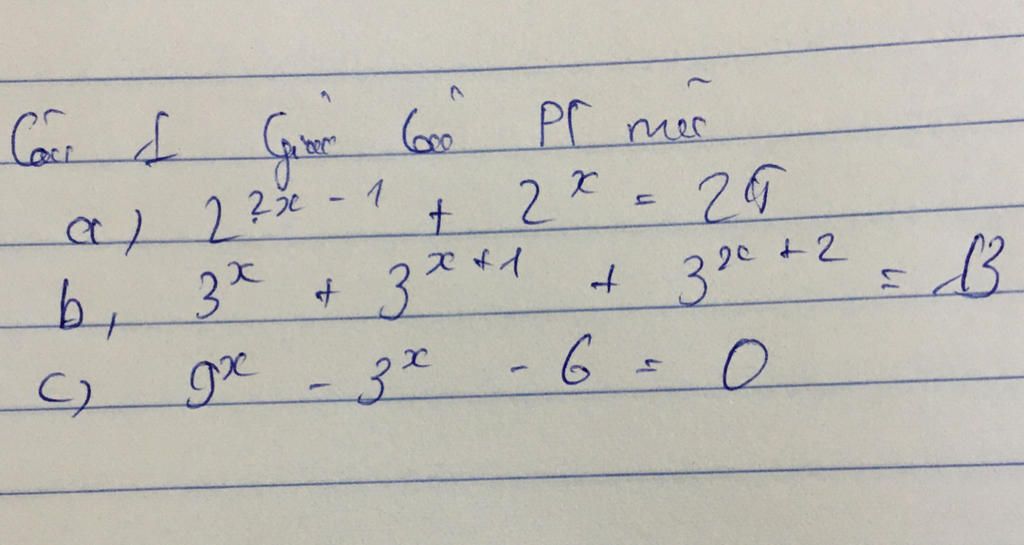 Câu 1 Giải các PT mũ
a) 2^{2x - 1} + 2^x =
b, 3^x + 3^{x + 1} + 3^{x + 2} = 13
c) 9^x - 3^x - 6 = 0